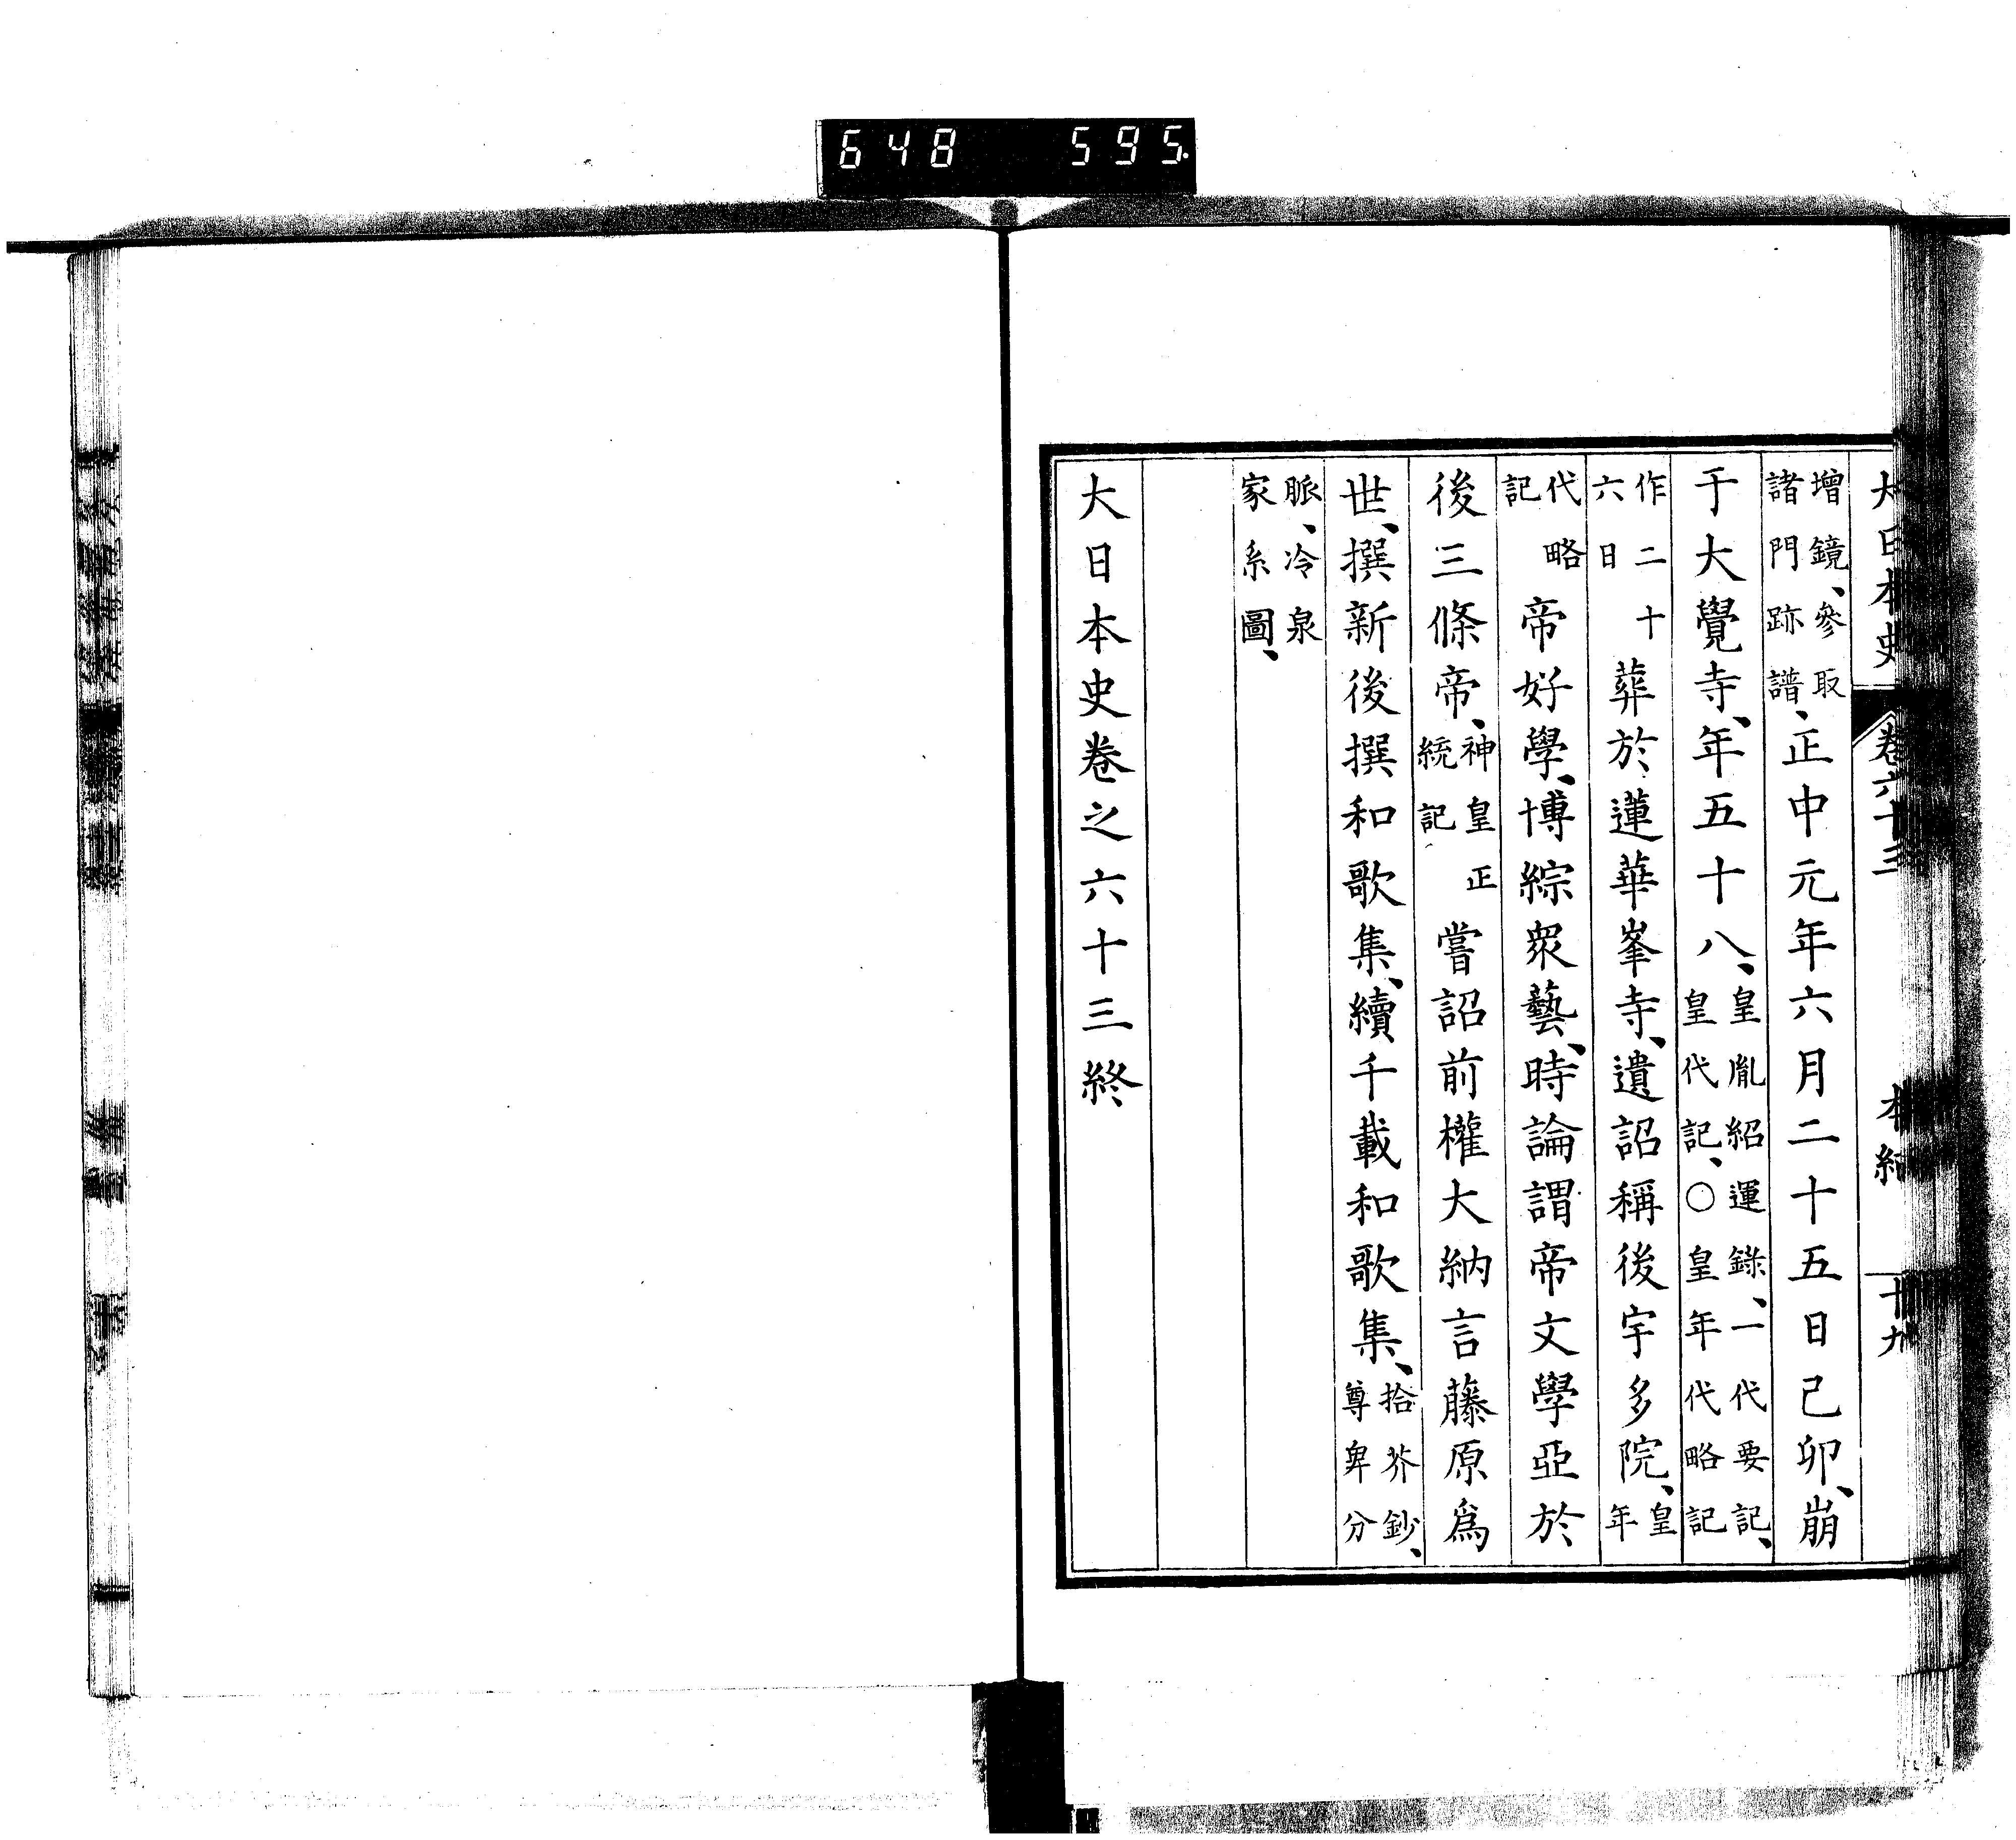 648 595
大日本史 卷六十三 本紀 十九
增鏡、參取諸門跡譜、正中元年六月二十五日己卯、崩
于大覺寺、年五十八、皇胤紹運錄、一代要記、皇代記、○皇年代略記
作二十六日葬於蓮華峯寺、遺詔稱後宇多院、皇年
代略記帝好學、博綜衆藝、時論謂帝文學亞於
後三條帝、神皇正統記嘗詔前權大納言藤原爲
世、撰新後撰和歌集、續千載和歌集、拾芥鈔、尊卑分
脈、冷泉家系圖、
大日本史卷之六十三終